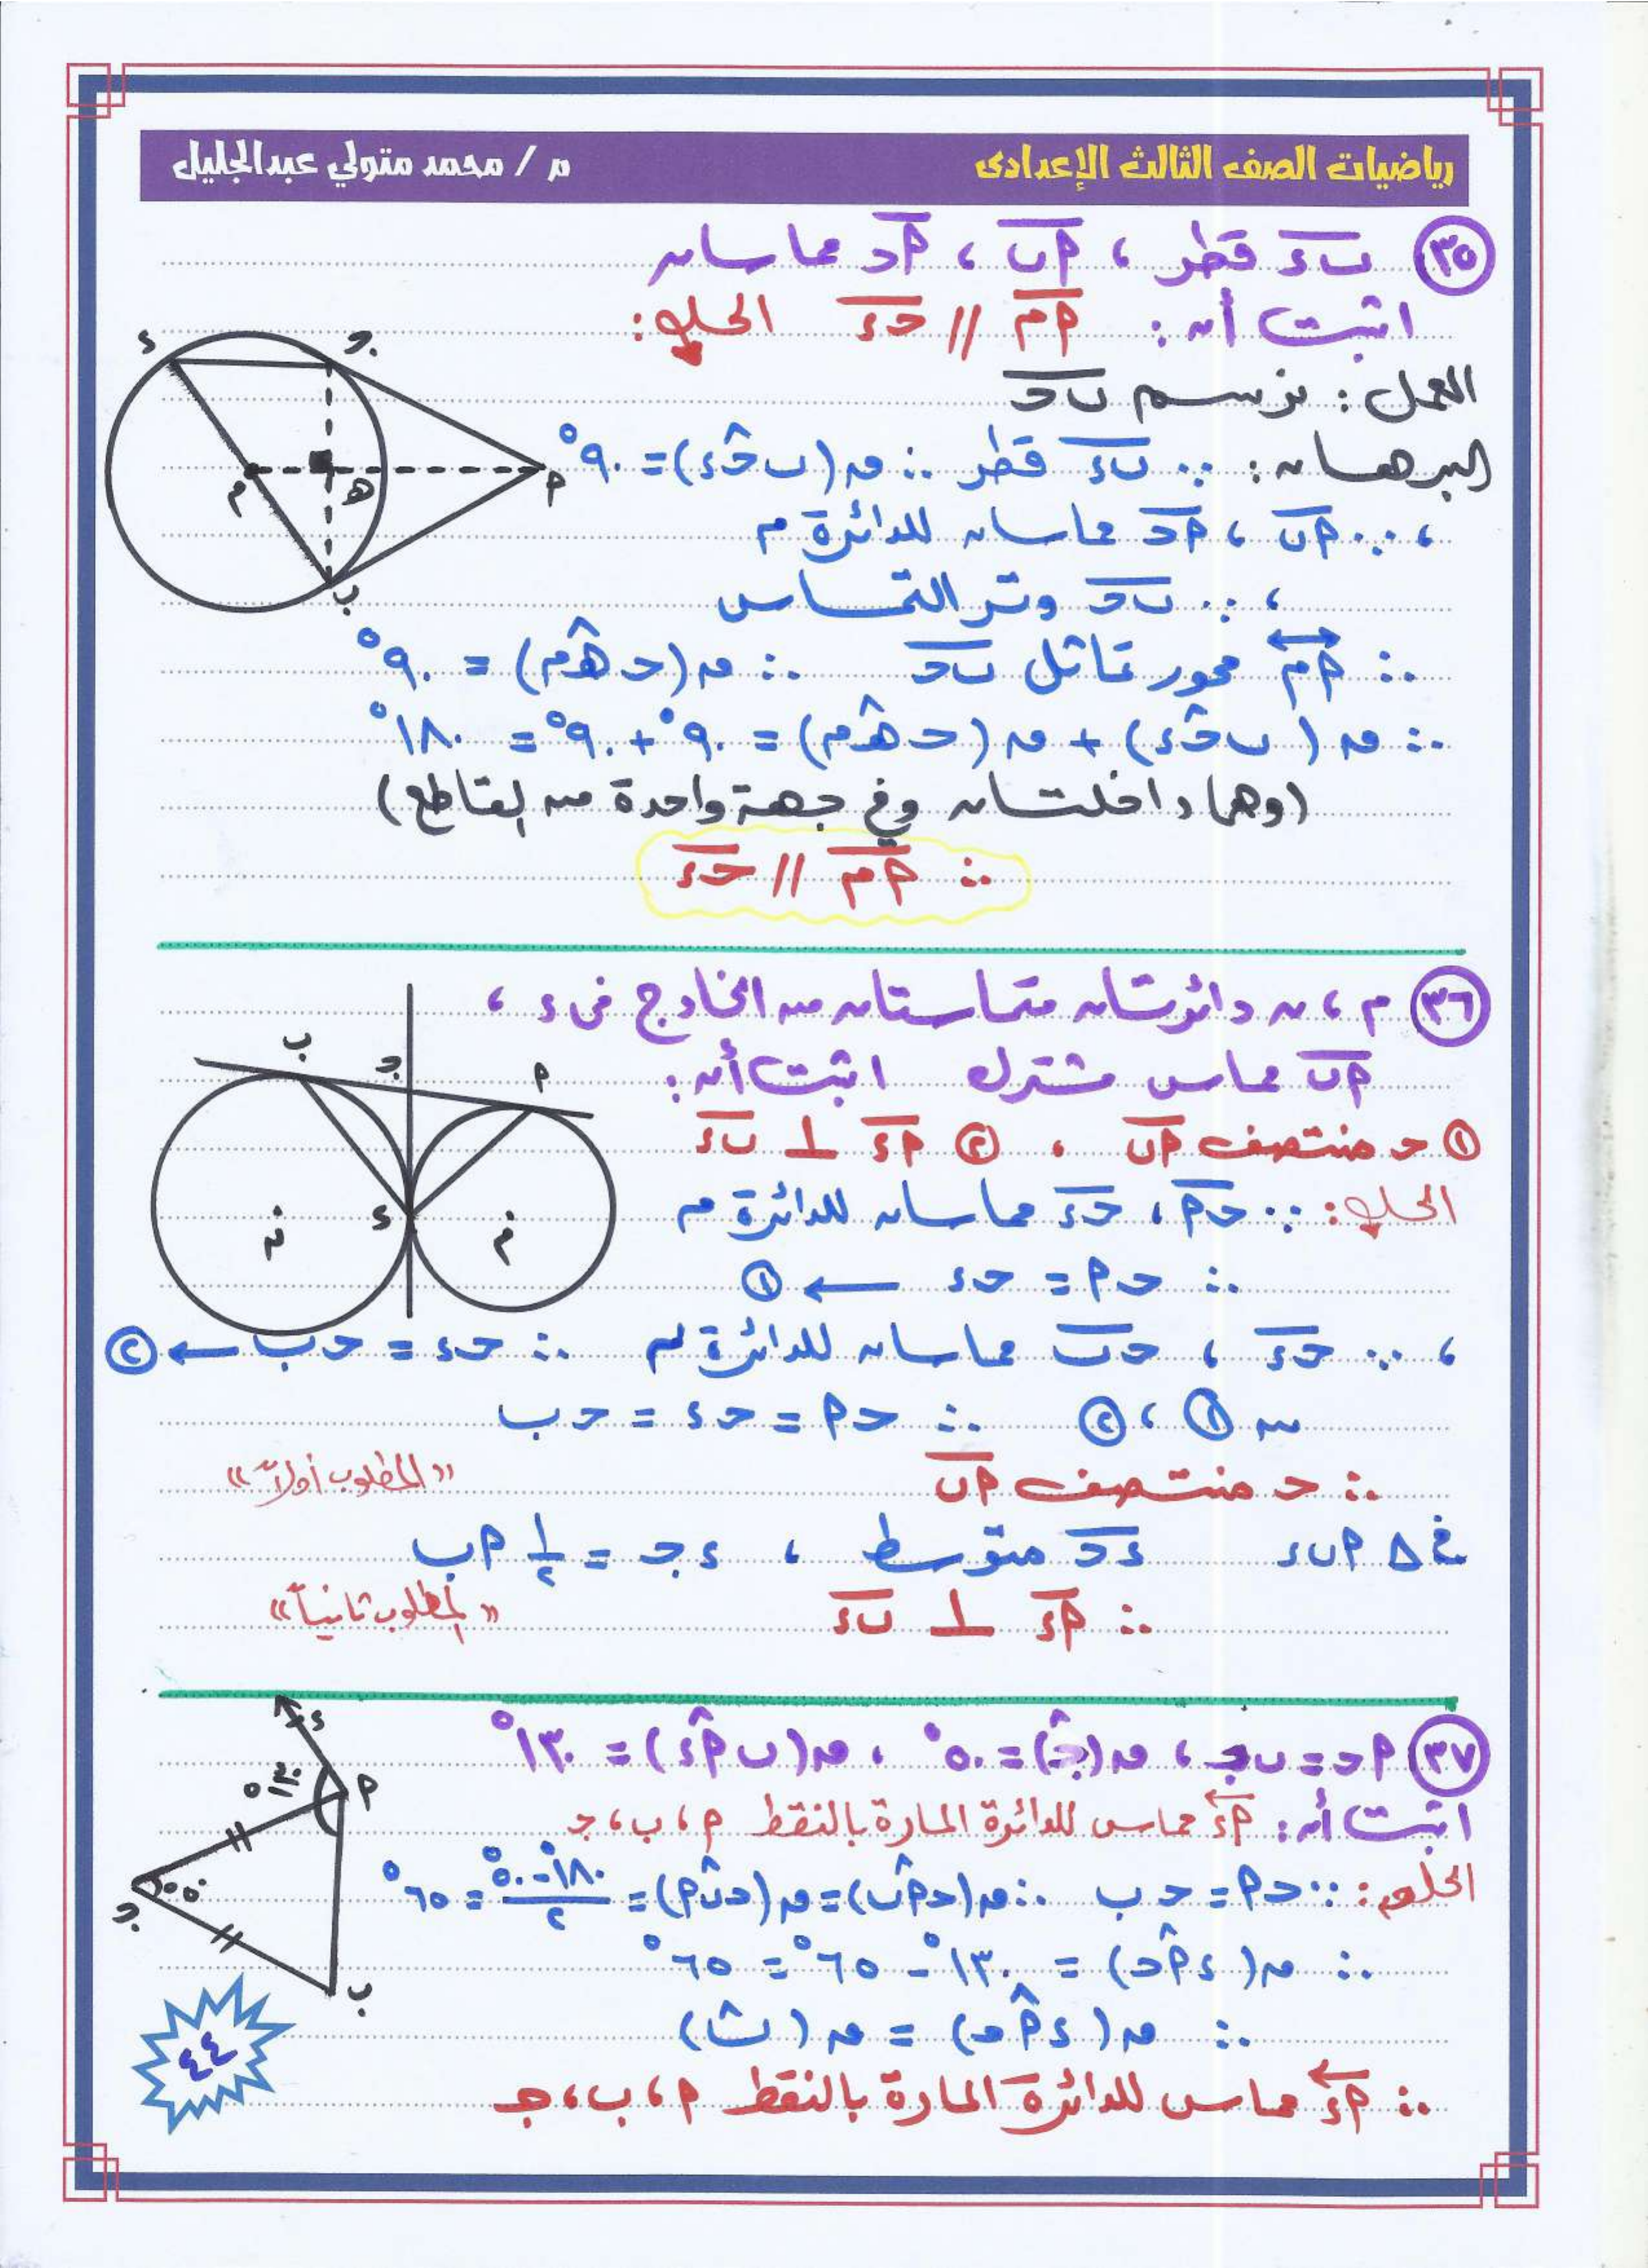 رياضيات الصف الثالث الإعدادى
م / محمد متولي عبدالجليل
٣٥ بء قطر ، أب ، أحـ مماسان
اثبت أن : أم // حـء الحل :
العمل : نرسم بحـ
البرهان : ∵ بء قطر ∴ ق(بحـ̂ء) = ٩٠°
، ∵ أب ، أحـ مماسان للدائرة م
، ∵ بحـ وتر التماس
∴ أم محور تماثل بحـ ∴ ق(حـهـ̂م) = ٩٠°
∴ ق(بحـ̂ء) + ق(حـهـ̂م) = ٩٠° + ٩٠° = ١٨٠°
(وهما داخلتان وفي جهة واحدة من القاطع)
∴ أم // حـء
ء جـ أ هـ م ب
٣٦ م ، ن دائرتان متماستان من الخارج في ء ،
أب مماس مشترك اثبت أن :
① حـ منتصف أب ، ② أء ⊥ بء
الحل : ∵ حـأ ، حـء مماسان للدائرة م
∴ حـأ = حـء ← ①
، ∵ حـء ، حـب مماسان للدائرة ن ∴ حـء = حـب ← ②
من ① ، ② ∴ حـأ = حـء = حـب
∴ حـ منتصف أب «المطلوب أولاً»
في Δ أبء ءحـ متوسط ، ءجـ = ١/٢ أب
∴ أء ⊥ بء «المطلوب ثانياً»
ب جـ أ ء ن م
٣٧ أحـ = بجـ ، ق(جـ̂) = ٥٠° ، ق(بأ̂ء) = ١٣٠°
اثبت أن : أء مماس للدائرة المارة بالنقط أ ، ب ، جـ
الحل : ∵ حـأ = حـب ∴ ق(حـأ̂ب) = ق(حـب̂أ) = (١٨٠° - ٥٠°)/٢ = ٦٥°
∴ ق(ءأ̂حـ) = ١٣٠° - ٦٥° = ٦٥°
∴ ق(ءأ̂حـ) = ق(ب̂)
∴ أء مماس للدائرة المارة بالنقط أ ، ب ، جـ
ء أ ١٣٠° ٥٠° جـ ب
٤٤